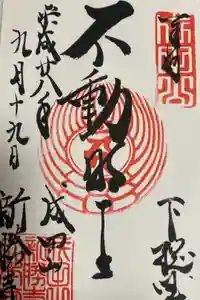 奉拝
下総国
不動明王
平成廿八年
九月十九日
成田山
新勝寺